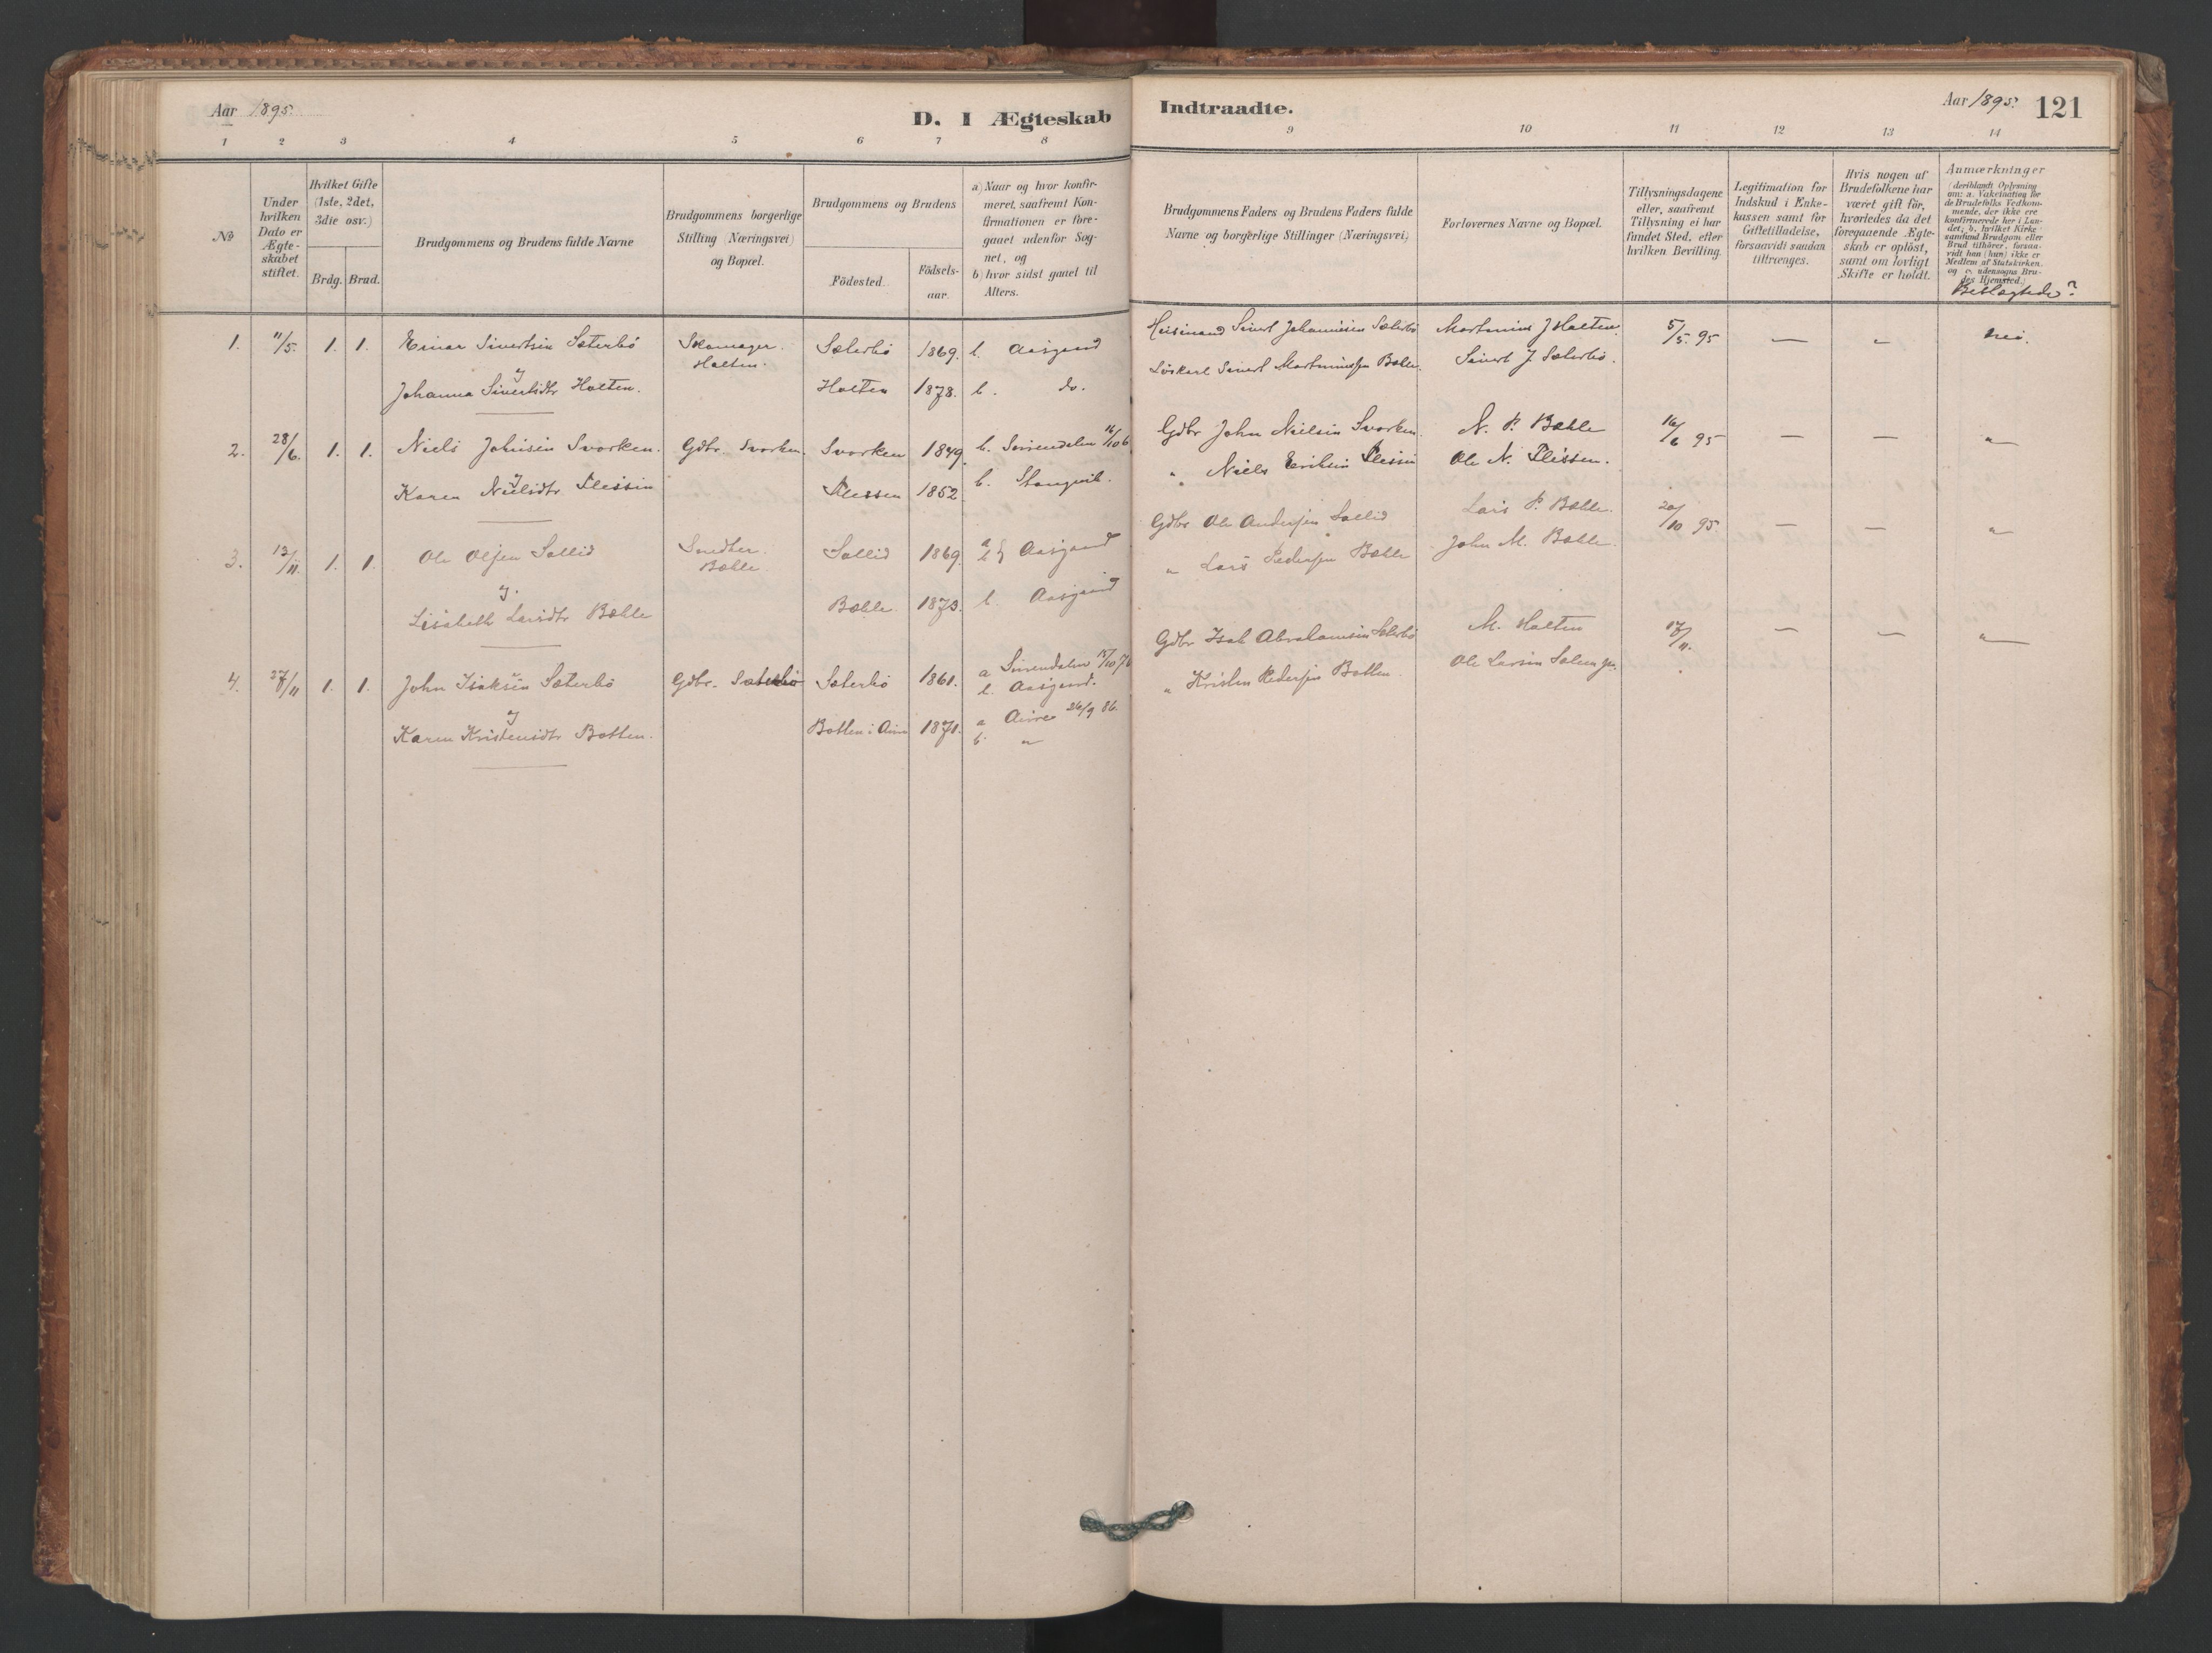 Aar 1895.
D. I Ægteskab
Indtraadte.
Aar 1895.
121
1 2 3 4 5 6 7 8 9 10 11 12 13 14
No
Under
hvilken
Dato er
Ægte-
skabet
stiftet.
Hvilket Gifte
(1ste, 2det,
3die osv.)
Brdg. Brud.
Brudgommens og Brudens fulde Navne
Brudgommens borgerlige
Stilling (Næringsvei)
og Bopæl.
Brudgommens og Brudens
Födested.
Födsels-
aar.
a) Naar og hvor konfir-
meret, saafremt Kon-
firmationen er fore-
gaaet udenfor Sog-
net, og
b) hvor sidst gaaet til
Alters.
Brudgommens Faders og Brudens Faders fulde
Navne og borgerlige Stillinger (Næringsvei)
Forlovernes Navne og Bopæl.
Tillysningsdagene
eller, saafremt
Tillysning ei har
fundet Sted, efter
hvilken Bevilling.
Legitimation for
Indskud i Enke-
kassen samt for
Giftetilladelse,
forsaavidt saadan
tiltrænges.
Hvis nogen af
Brudefolkene har
været gift för,
hvorledes da det
foregaaende Ægte-
skab er oplöst,
samt om lovligt
Skifte er holdt.
Anmærkninger
(deriblandt Oplysning
om: a. Vakcination for
de Brudefolks Vedkom-
mende, der ikke ere
konfirmerede her i Lan-
det; b. hvilket Kirke-
samfund Brudgom eller
Brud tilhører, forsaa-
vidt han (hun) ikke er
Medlem af Statskirken.
og c. udensogns Bru-
des Hjemsted.)
Beslægtede?
1. 11/5. 1. 1. Einar Sivertsen Sæterbö Skomager. Sæterbö 1869. b. Aasgaard Sivert Johannesen Sæterbö Martinus J Holten. 5/5. 95 — " nei.
Holten.
og
Johanna Sivertsdtr Holten. Holten 1878. b. do. Löskarl Sivert Martinussen Bæhle. Sivert J. Sæterbö.
2. 28/6. 1. 1. Niels Johnsen Svorken. Gdbr. Svorken. Svorken 1849. b. Surendalen 16/10 6 Gdbr John Nielsen Svorken. N. P. Bæhle 16/6 95 — — "
og
Karen Nielsdtr Flessen Flessen 1852 b. Stangvik. " Niels Eriksen Flessen Ole N. Flessen.
3. 13/11. 1. 1. Ole Olsen Sollid Snedker. Sollid 1869. a b } Aasgaard Gdbr Ole Andersen Sollid Lars P. Bæhle. 20/10 95. — — "
Bæhle
og.
Lisabeth Larsdtr Bæhle Bæhle 1873. b. Aasgaard " Lars Pedersen Bæhle John M. Bæhle
4. 27/11 1. 1. John Isaksen Sæterbö Gdbr. Sæterbö Sæterbö 1861. a Surendalen 15/10 76 Gdbr Isak Abrahamsen Sæterbö M. Holten 17/11. — — "
b. Aasgaard.
og
Karen Kristensdtr Botten. Botten i Aure 1871. a Aure 26/9 86. " Kristen Pedersen Botten. Ole Larsen
b. "